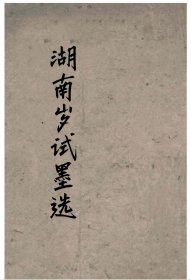 湖南岁试墨选